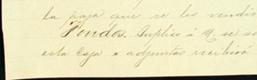 la paja que se les vendió
Fondos. Suplico á V. se s
esta Caja o adjunta recibirá